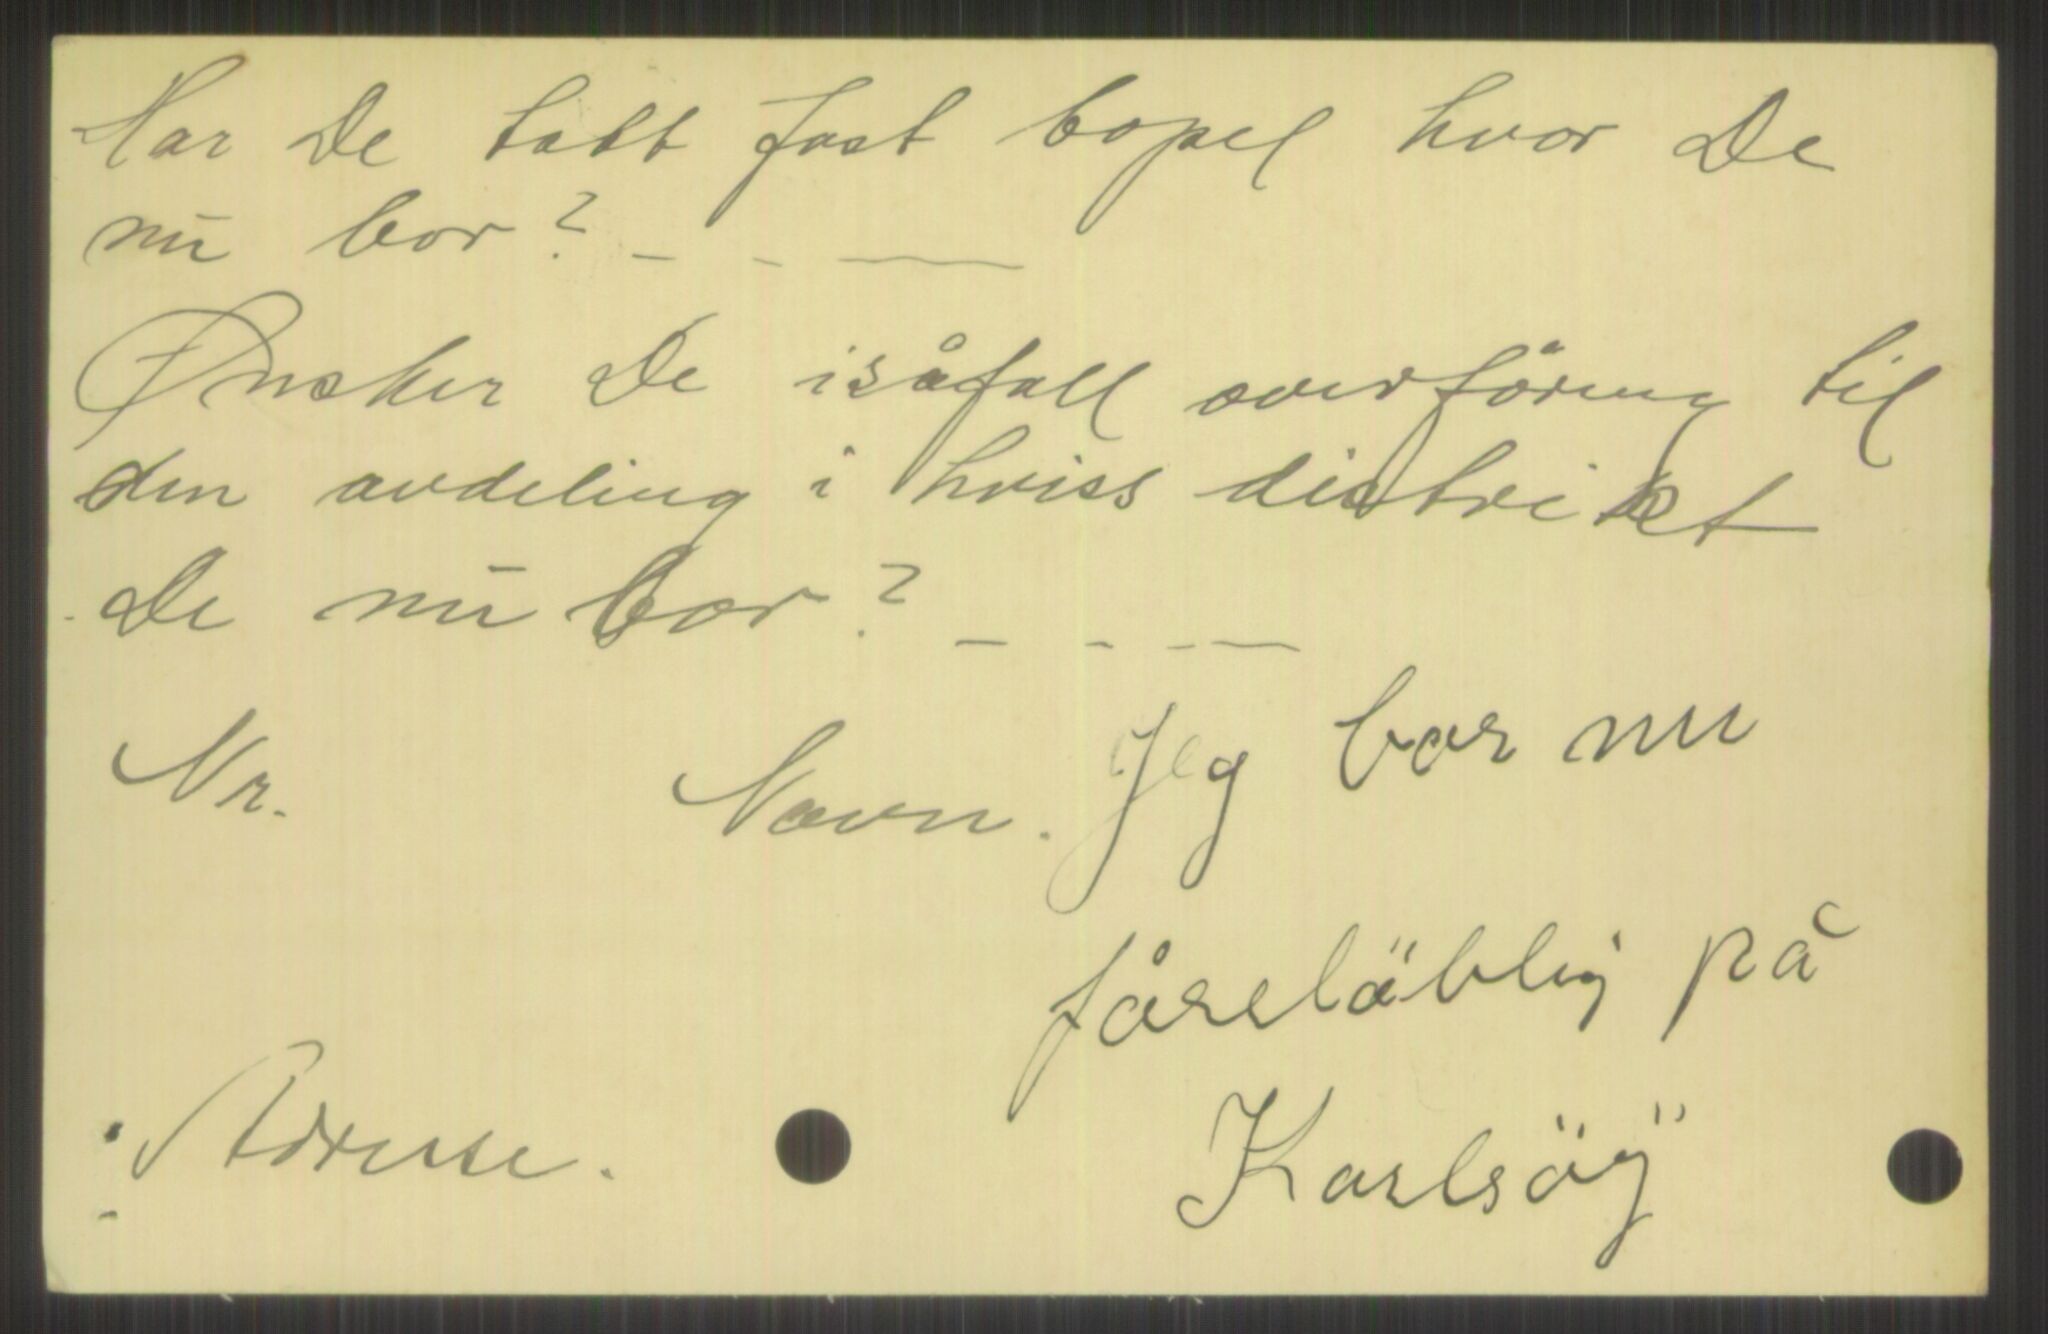 Har De tatt fast bopel hvor De
nu bor? - - —
Ønsker De isåfall overföring til
den avdeling i hviss distrikt
De nu bor? - - - —
Nr. Navn. Jeg bor nu
föreløblig på
Karlsöÿ
Adresse.